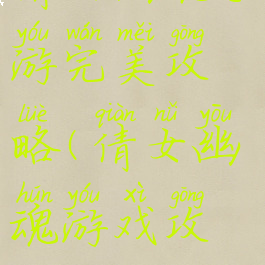 yóu wán měi gōng
游完美攻
lüè qiàn nǚ yōu
略(倩女幽
hún yóu xì gōng
魂游戏攻